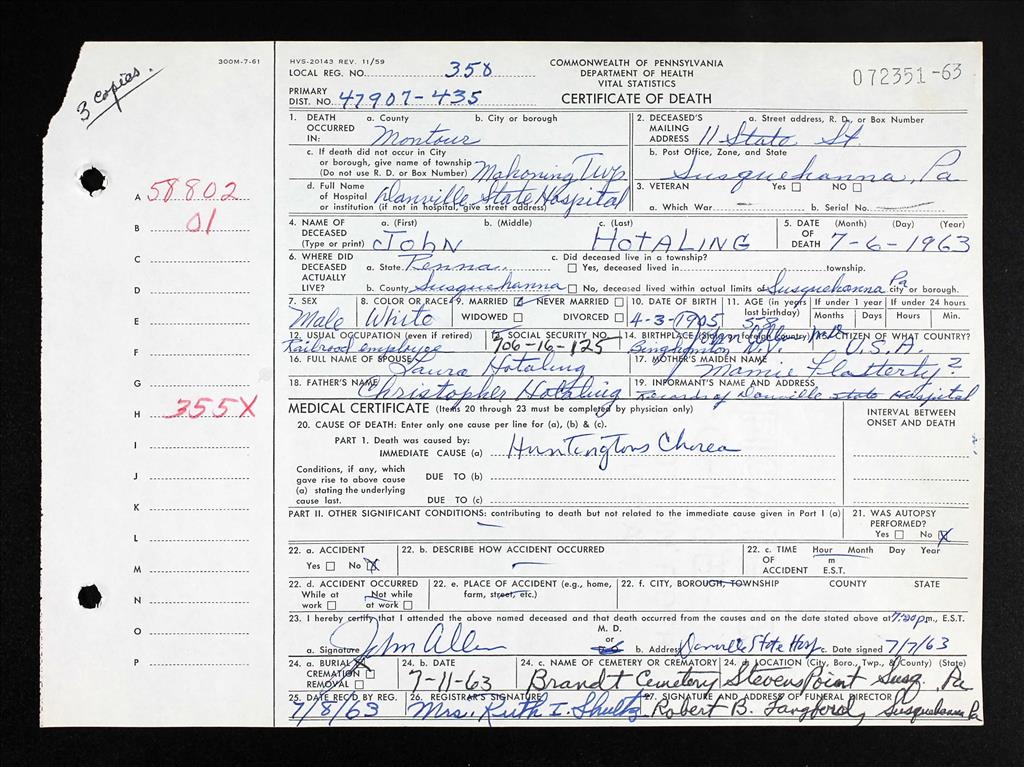 3 Copies.
300M-7-61
HVS-20143 REV. 11/59
LOCAL REG. NO. 358
PRIMARY DIST. NO. 47907-435
COMMONWEALTH OF PENNSYLVANIA
DEPARTMENT OF HEALTH
VITAL STATISTICS
CERTIFICATE OF DEATH
072351-63
A 58802
B 01
C
D
E
F
G
H 355X
I
J
K
L
M
N
O
P
1. DEATH OCCURRED IN: a. County b. City or borough
Montour
c. If death did not occur in City or borough, give name of township (Do not use R. D. or Box Number) Mahoning Twp
d. Full Name of Hospital or institution (if not in hospital, give street address) Danville State Hospital
2. DECEASED'S MAILING ADDRESS a. Street address, R. D., or Box Number
11 State St.
b. Post Office, Zone, and State
Susquehanna, Pa
3. VETERAN Yes NO
a. Which War — b. Serial No. —
4. NAME OF DECEASED (Type or print) a. (First) b. (Middle) c. (Last)
JOHN HOTALING
5. DATE OF DEATH (Month) (Day) (Year)
7-6-1963
6. WHERE DID DECEASED ACTUALLY LIVE? a. State Penna.
b. County Susquehanna
c. Did deceased live in a township?
Yes, deceased lived in township.
No, deceased lived within actual limits of Susquehanna Pa city or borough.
7. SEX Male
8. COLOR OR RACE White
9. MARRIED NEVER MARRIED
WIDOWED DIVORCED
10. DATE OF BIRTH 4-3-1905
11. AGE (in years last birthday) 58
If under 1 year Months Days
If under 24 hours Hours Min.
12. USUAL OCCUPATION (even if retired) Railroad employee
SOCIAL SECURITY NO. 706-16-125
14. BIRTHPLACE Binghamton N.Y.
CITIZEN OF WHAT COUNTRY? U.S.A.
16. FULL NAME OF SPOUSE Laura Hotaling
17. MOTHER'S MAIDEN NAME Mamie Flatterty?
18. FATHER'S NAME Christopher Hotaling
19. INFORMANT'S NAME AND ADDRESS
Records of Danville State Hospital
MEDICAL CERTIFICATE (Items 20 through 23 must be completed by physician only)
INTERVAL BETWEEN ONSET AND DEATH
20. CAUSE OF DEATH: Enter only one cause per line for (a), (b) & (c).
PART 1. Death was caused by:
IMMEDIATE CAUSE (a) Huntingtons Chorea
Conditions, if any, which gave rise to above cause (a) stating the underlying cause last.
DUE TO (b)
DUE TO (c)
PART II. OTHER SIGNIFICANT CONDITIONS: contributing to death but not related to the immediate cause given in Part I (a)
—
21. WAS AUTOPSY PERFORMED?
Yes No X
22. a. ACCIDENT
Yes No X
22. b. DESCRIBE HOW ACCIDENT OCCURRED
—
22. c. TIME OF ACCIDENT Hour Month Day Year
m E.S.T.
22. d. ACCIDENT OCCURRED
While at work Not while at work
22. e. PLACE OF ACCIDENT (e.g., home, farm, street, etc.)
22. f. CITY, BOROUGH, TOWNSHIP COUNTY STATE
23. I hereby certify that I attended the above named deceased and that death occurred from the causes and on the date stated above at 7:20 p m., E.S.T.
a. Signature John Allen
M. D. or
b. Address Danville State Hosp
c. Date signed 7/7/63
24. a. BURIAL X
CREMATION
REMOVAL
24. b. DATE 7-11-63
24. c. NAME OF CEMETERY OR CREMATORY
Brandt Cemetery
24. d. LOCATION (City, Boro., Twp., & County) (State)
Stevens Point Susq. Pa
25. DATE REC'D BY REG. 7/8/63
26. REGISTRAR'S SIGNATURE
Mrs. Ruth I. Shultz
27. SIGNATURE AND ADDRESS OF FUNERAL DIRECTOR
Robert B. Susquehanna Pa